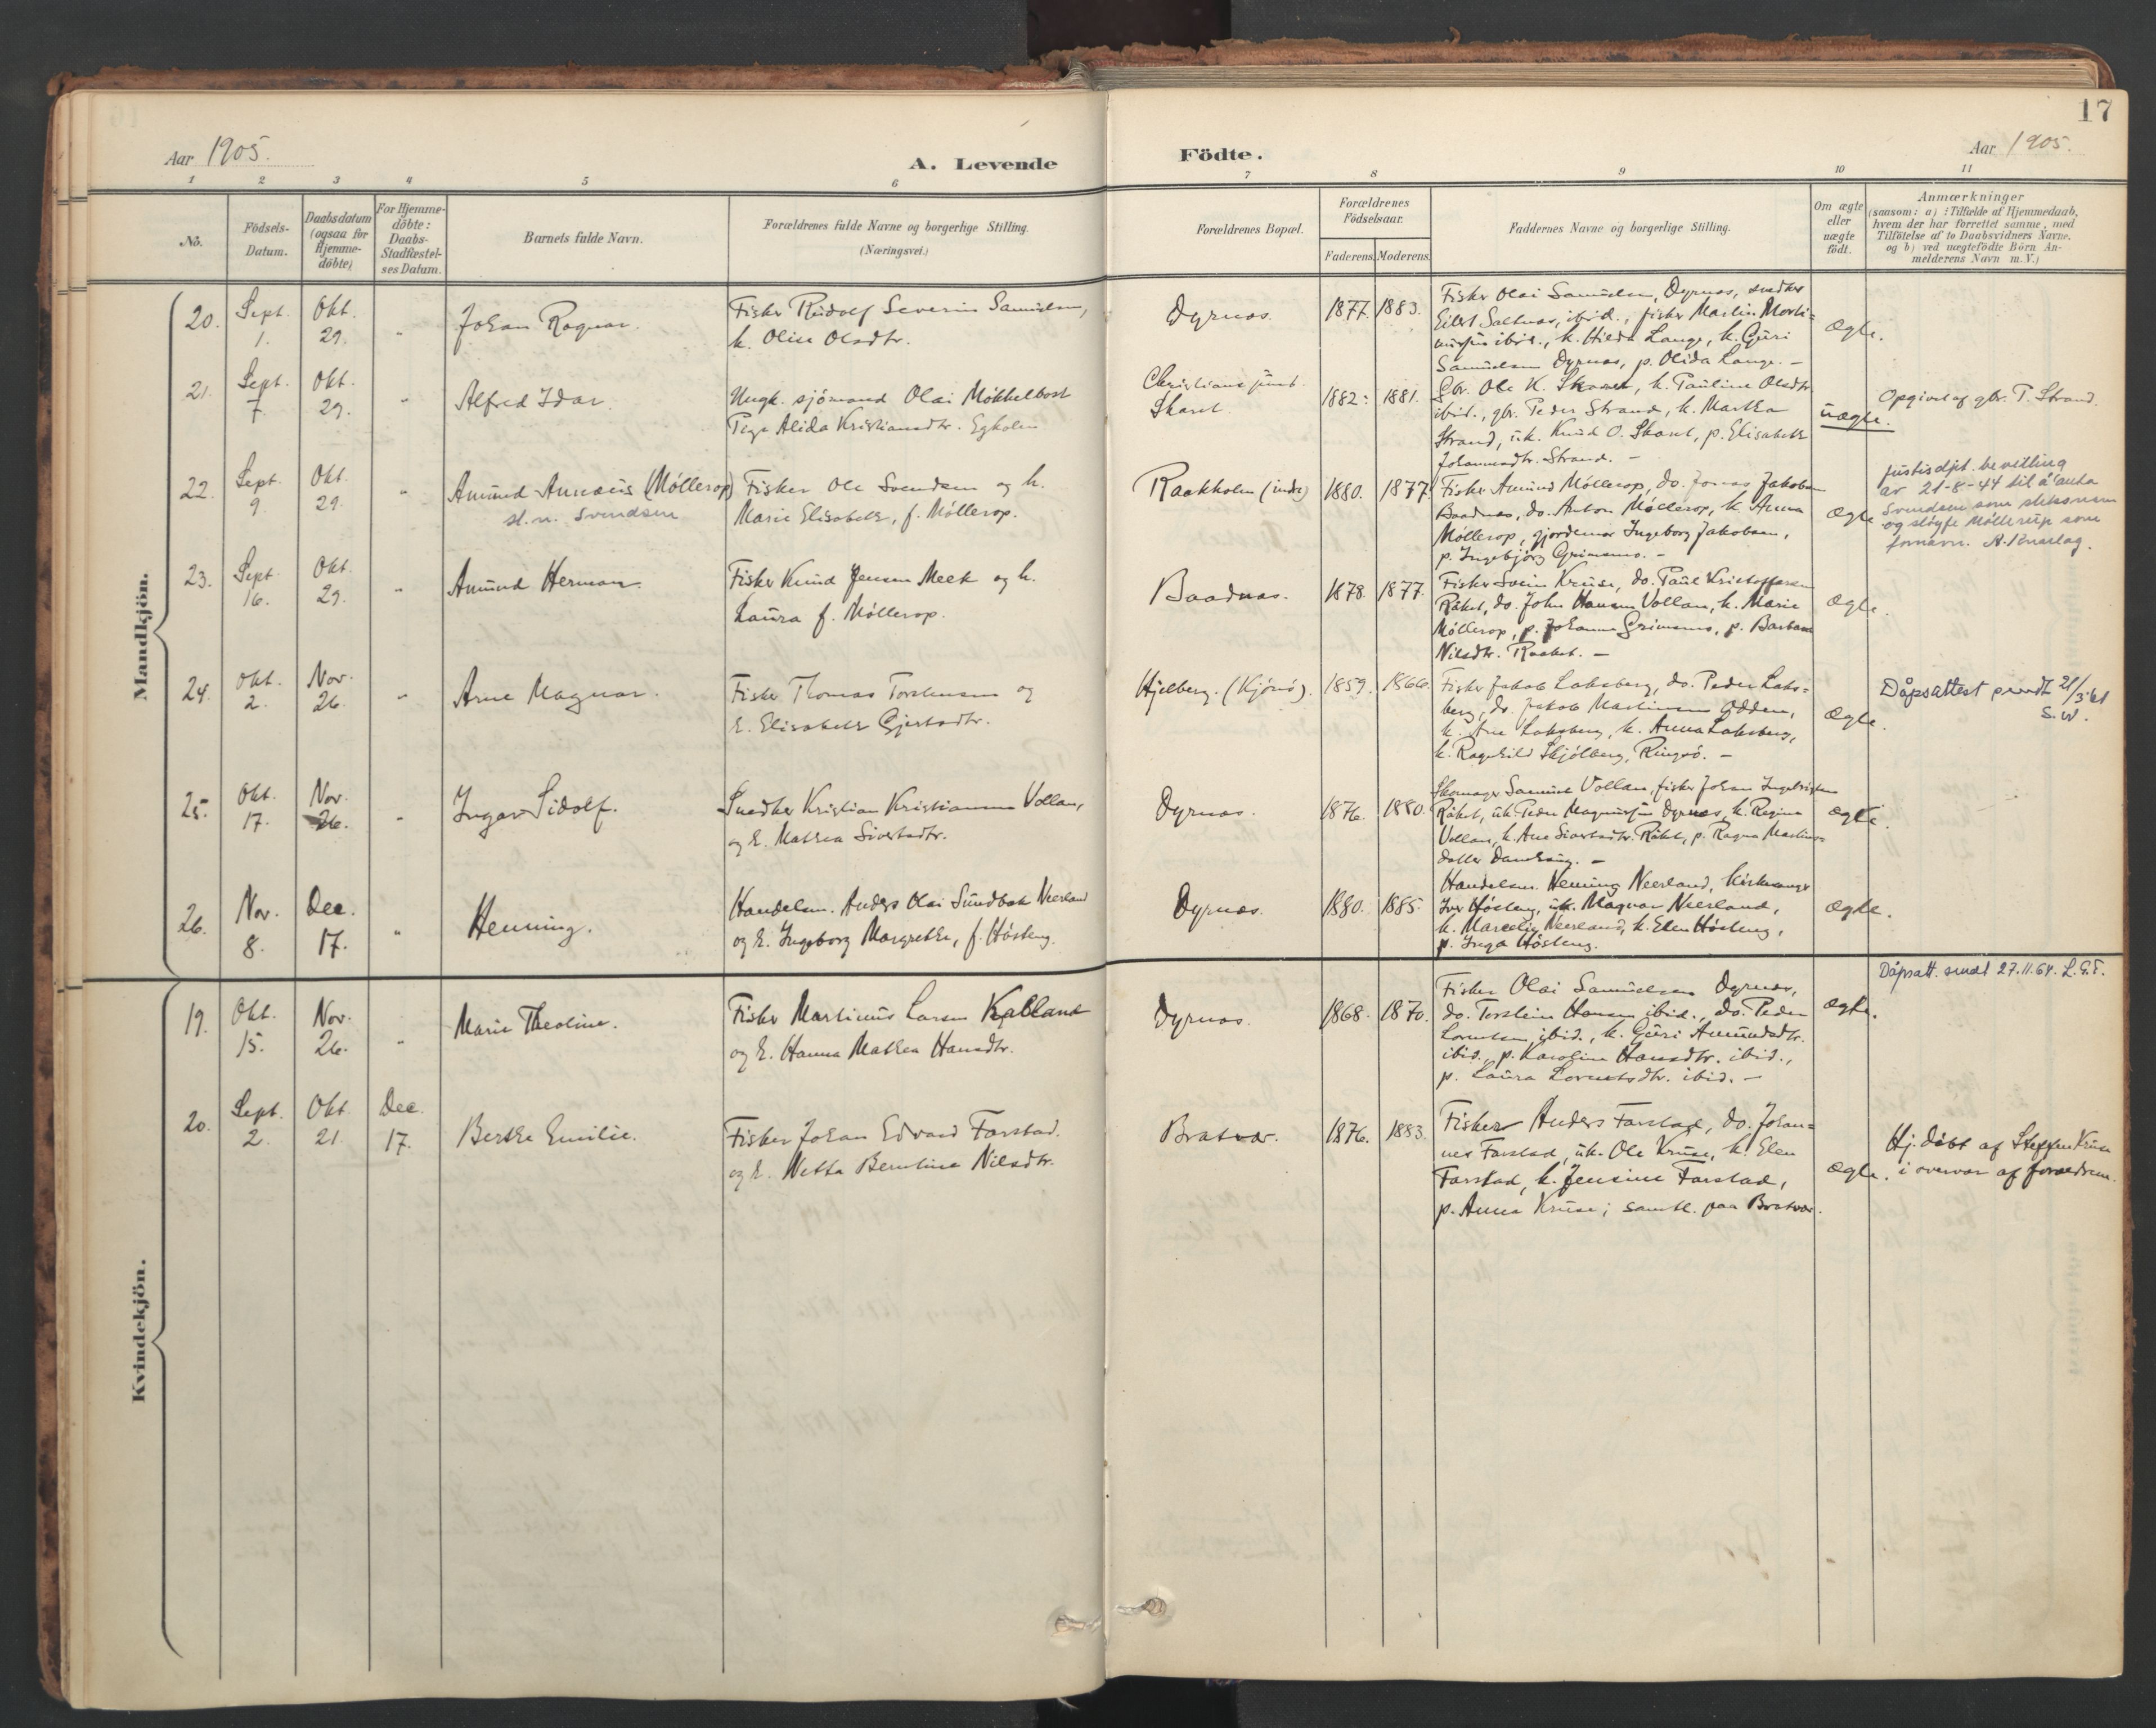 17
Aar 1905.
A. Levende
Födte.
Aar 1905.
1 2 3 4 5 6 7 8 9 10 11
No.
Födsels-
Datum.
Daabsdatum
(ogsaa for
Hjemme-
döbte)
For Hjemme-
döbte:
Daabs-
Stadfæstel-
ses Datum.
Barnets fulde Navn.
Forældrenes fulde Navne og borgerlige Stilling.
(Næringsvei.)
Forældrenes Bopæl.
Forældrenes
Födselsaar.
Faderens. Moderens.
Faddernes Navne og borgerlige Stilling.
Om ægte
eller
uægte
födt.
Anmærkninger
(saasom: a) : Tilfælde af Hjemmedaab,
hvem der har forrettet samme, med
Tilföielse af to Daabsvidners Navne,
og b) ved uægtefödte Börn An-
melderens Navn m. V.)
Mandkjön.
20. Sept. 1. Okt. 29. "
Johan Ragnar.
Fisker Rudolf Severin Samuelsen,
h. Oline Olsdtr.
Dyrnæs. 1877. 1883.
Fisker Olai Samuelsen, Dyrnæs, snedker
Eilert Saltnæs, ibid., fisker Martin Morti=
ibid., h. Hilda Lange, h. Guri
Samuelsen Dyrnæs, p. Olida Lange. –
Ægte.
21. Sept. 7. Okt. 29. "
Alfred Idar.
Ungk. sjömand Olai Mökkelbost
Pige Alida Kristiansdtr. Egholm
Christianssund.
Skaret. 1882: 1881.
Gbr. Ole K. Skaret, h. Pauline Olsdtr.
ibid., gbr. Peder Strand, h. Martha
Strand, uk. Knud O. Skaret, p. Elisabeth
Johannesdtr. Strand. –
Uægte.
Opgivet af gbr. P. Strand.
22. Sept. 9. Okt. 29. "
Amund Annæus (Möllerop)
sl. n. Svendsen
Fisker Ole Svendsen og h.
Marie Elisabeth, f. Möllerop.
Raakholm (indre) 1880. 1877.
Fisker Amund Möllerop, do. Jonas Jakobsen
Baadnæs, do. Anton Möllerop, h. Anna
Möllerop, gjordemor Ingeborg Jakobsen,
p. Ingebjörg Grimsmo. –
Ægte
Justisdpt. bevilling
av 21-8-44 til å anta
Svendsen som slektsnavn
og slöyfe Möllerup som
fornavn. A. Knarlag.
23. Sept. 16. Okt. 29. "
Amund Herman.
Fisker Knud Jensen Meek og h.
Laura f. Möllerop.
Baadnæs. 1878. 1877.
Fisker Svein Kruse, do. Paul Kristoffersen
Råket, do. John Hansen Vollan, h. Marie
Möllerop, p. Johanna Grimsmo, p. Barbara
Nilsdtr. Raaket. –
Ægte.
24. Okt. 2. Nov. 26. "
Arne Magnar.
Fisker Thomas Torstensen og
h. Elisabeth Gjertsdtr.
Hjelberg. (Kjönö). 1859. 1866.
Fisker Jakob Laksberg, do. Peder Laks=
berg, do. Jakob Martinsen Odden,
h. Ane Laksberg, h. Anna Laksberg,
h. Ragnhild Skjölberg, Ringsö. –
Ægte.
Dåpsattest sendt 21/3 61
S.W.
25. Okt. 17. Nov. 26. "
Ingar Sidolf.
Snedker Kristian Kristiansen Vollan,
og h. Mathea Sivertsdtr.
Dyrnæs. 1876. 1880.
Skomager Samuel Vollan, fisker Johan Ingebrigtsen
Råket, uk. Peder Magnussen Dyrnæs, h. Regine
Vollan, h. Ane Sivertsdtr. Råket, p. Ragna Martinus=
datter –
Ægte.
26. Nov. 8. Dec. 17. "
Henning.
Handelsm. Anders Olai Sundbak Neerland
og h. Ingeborg Margrethe, f. Hösteng.
Dyrnæs. 1880. 1885.
Handelsm. Henning Neerland, kirkesanger
Iver Hösteng, uk. Magnar Neerland,
h. Marcelie Neerland, h. Elen Hösteng,
p. Inga Hösteng.
Ægte.
Kvindekjön.
19. Okt. 15. Nov. 26. "
Marie Theoline.
Fisker Martinus Larsen Kalland
og h. Hanna Mathea Hansdtr.
Dyrnæs. 1868. 1870.
Fisker Olai Samuelsen Dyrnæs,
do. Torstein Hansen ibid., do. Peder
Lorentsen ibid., h. Guri Amundsdtr.
ibid., p. Karoline Hansdtr. ibid.,
p. Laura Lorentsdtr. ibid. –
Ægte.
Dåpsatt. sendt 27.11.64. L.G.F.
20. Sept. 2. Okt. 21. Dec. 17.
Berthe Emilie.
Fisker Johan Edvard Farstad.
og h. Netta Berntine Nilsdtr.
Bratvær. 1876. 1883.
Fisker Anders Farstad, do. Johan=
nes Farstad, uk. Ole Kruse, h. Elen
Farstad, h. Jensine Farstad,
p. Anna Kruse; samtl. paa Bratvær.
Ægte.
Hj. döbt af Steffen Kruse
i overvær af forældrene.